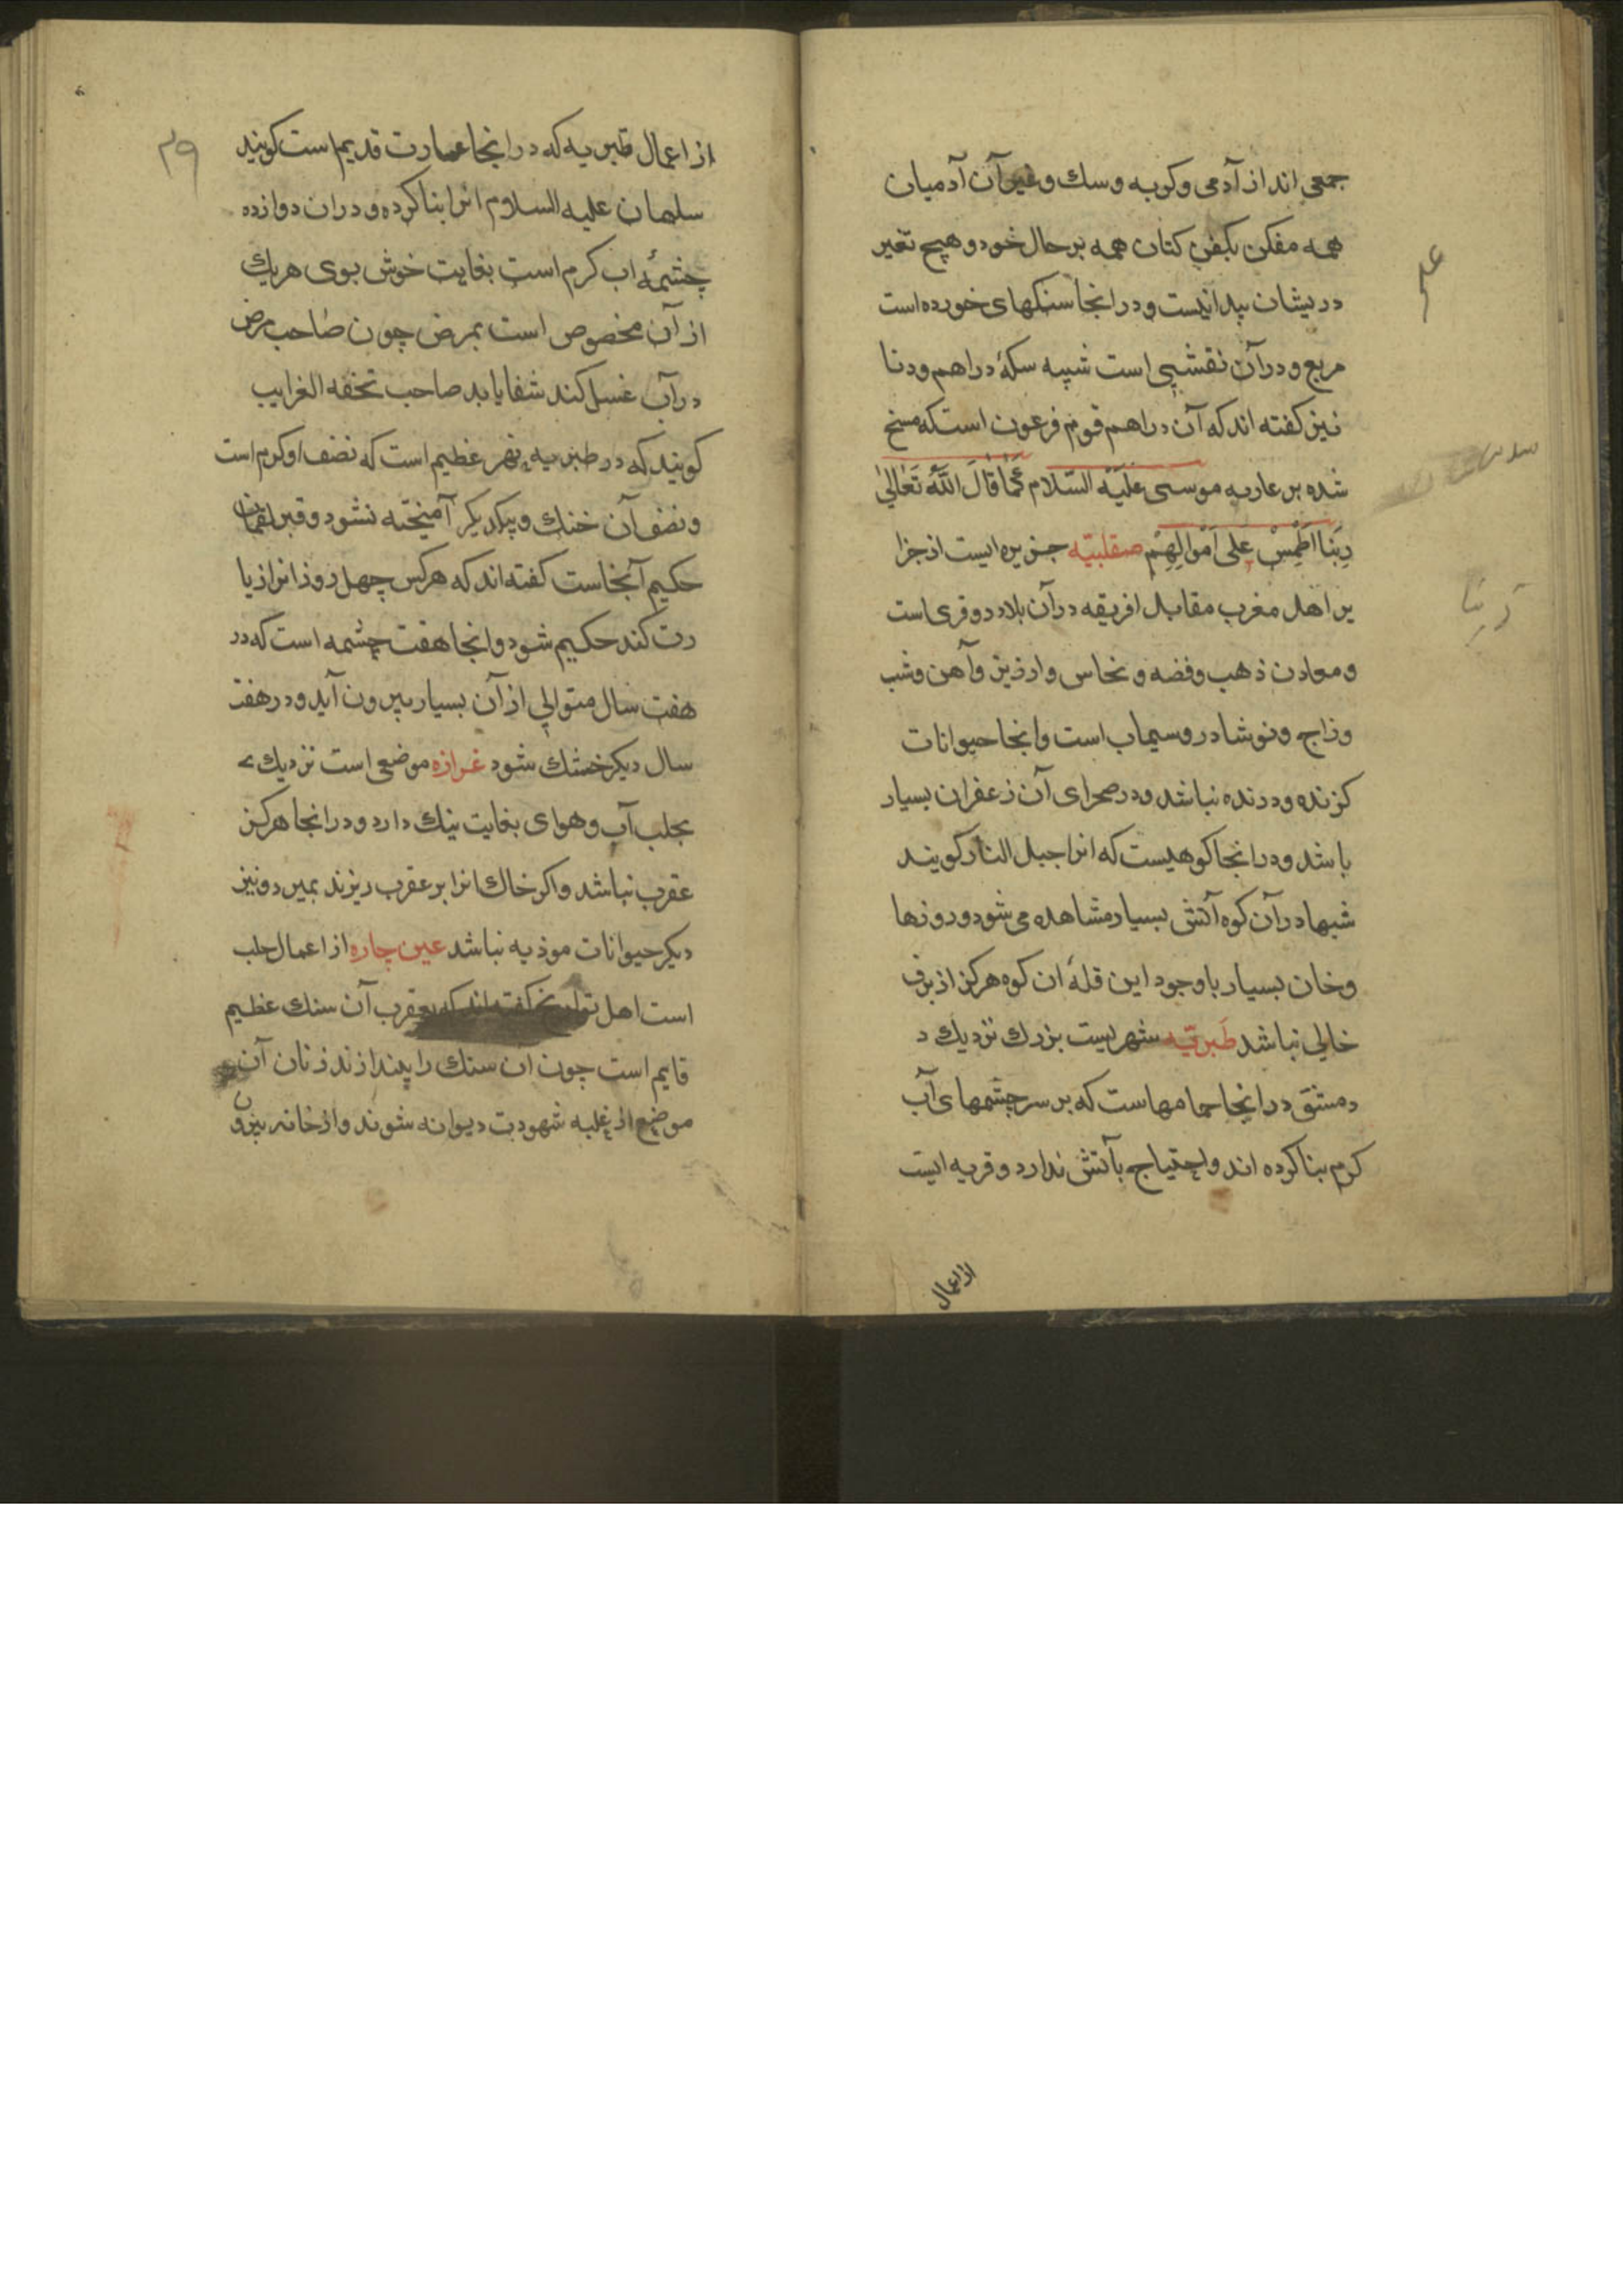 جمعی اند از آدمی و کربه و سك و غیر آن آدمیان
همه مفکن بکفن کتان همه بر حال خود و هیچ تغیر
دریشان پیدا نیست و در انجا سنکهای خورده است
مربع و در آن نقشی است شبیه سکهٔ دراهم و دنا
نیز کفته اند که آن دراهم قوم فرعون است که مسخ
شده بر عاریه موسی عَلَیْه السَّلام کَمٰا قٰالَ اللّٰهُ تَعٰالیٰ
رَبِّنَا اَطْمِسْ عَلی اَمْوالِهِمْ صقلبیّه جزیره ایست از جزا
یر اهل مغرب مقابل افریقه در آن بلاد دو قری است
و معادن ذهب و فضه و نحاس و ارزیز و آهن و شب
و زاج و نوشادر و سیماب است و انجا حیوانات
کزنده و درنده نباشد و در صحرای آن زعفران بسیار
باشد و در انجا کوهیست که انرا جبل النار کویند
شبها در آن کوه آتش بسیار مشاهده می شود و روزها
وخان بسیار با وجود این قلهٔ ان کوه هرکز از برف
خالی نباشد طَبریّه شهریست بزرك نزدیك د
دمشق در اینجا حمامهاست که بر سر چشمهای آب
کرم بنا کرده اند و احتیاج بآتش ندارد و قریه ایست
از اعمال
ربنا
۲۹
از اعمال طبریه که در انجا عمارت قدیم است کویند
سلیمان علیه السلام انرا بنا کرده و در ان دوازده
چشمهٔ اب کرم است بغایت خوش بوی هریك
از آن مخصوص است بمرض چون صاحب مرض
در آب غسل کند شفا یابد صاحب تحفه الغرایب
کویند که در طبریه نهر عظیم است که نصف او کرم است
و نصف آن خنك و بیکدیکر آمیخته نشود و قبر لقمان
حکیم آنجاست کفته اند که هرکس چهل روز انرا زیا
رت کند حکیم شود و انجا هفت چشمه است که در
هفت سال متوالی از آن بسیار بیرون آید و در هفت
سال دیکر خشك شود غرازه موضعی است نزدیك
بجلب آب و هوای بغایت نیك دارد و در انجا هرکز
عقرب نباشد و اکر خاك انرا بر عقرب ریزند بمیرد و نیز
دیکر حیوانات موذیه نباشد عین جاره از اعمال حلب
است اهل تواریخ کفته اند که بعقرب آن سنك عظیم
قایم است چون ان سنك را بیندازند زنان آن
موضع از غلبه شهوت دیوانه شوند و از خانه بیرون